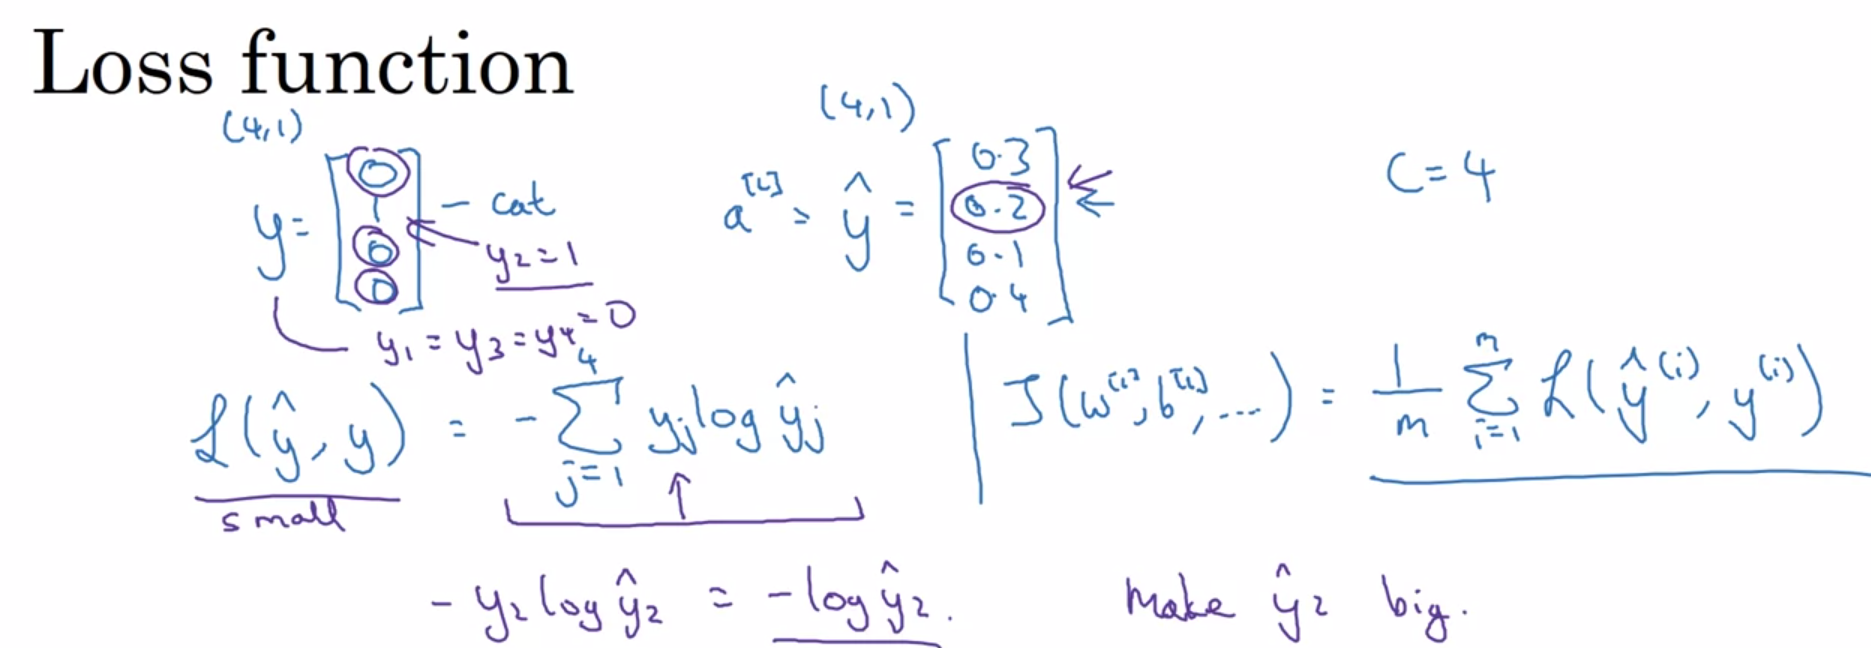 Loss function
(4,1)
y = [0 1 0 0] - cat
y₂=1
y₁ = y₃ = y₄ = 0
(4,1)
a^[L] = ŷ = [0.3 0.2 0.1 0.4]
C=4
ℒ(ŷ, y) = -∑_{j=1}^{4} yⱼ log ŷⱼ
small
J(w^[1], b^[1], ...) = 1/m ∑_{i=1}^{m} ℒ(ŷ^(i), y^(i))
- y₂ log ŷ₂ = -log ŷ₂.
Make ŷ₂ big.